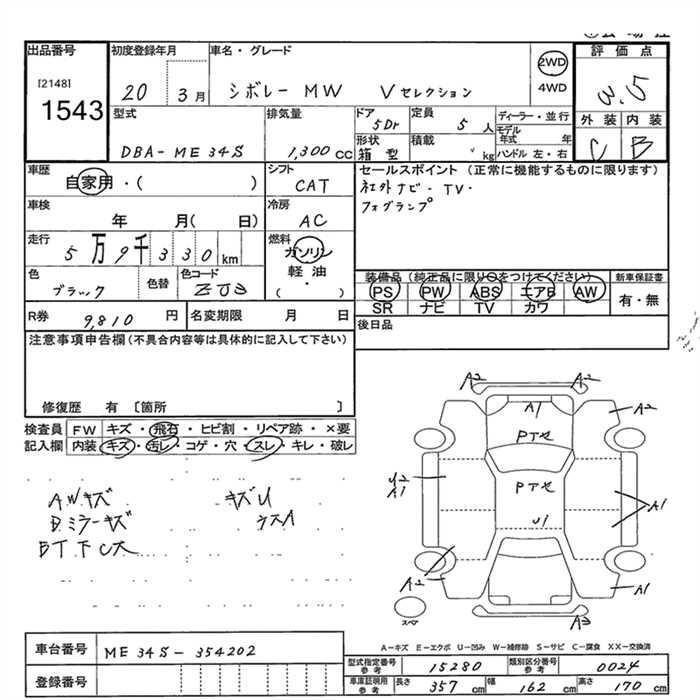 出品番号 初度登録年月 車名・グレード 評価点
[2148]
1543
20 3月 シボレー MW Vセレクション 2WD 4WD 3.5
外装 内装
C B
型式 排気量 ドア 定員 ディーラー・並行
DBA-ME34S 1,300cc 5Dr 5人 モデル年式 年
形状 積載 ハンドル 左・右
箱型 kg
車歴 シフト セールスポイント(正常に機能するものに限ります)
自家用・( ) CAT 社外ナビ・TV・
車検 冷房 フォグランプ
年 月( 日) AC
走行 燃料
5万9千330km ガソリン
軽油
( )
色 色替 色コード
ブラック ZJ3
装備品(純正品に限り○をつけてください) 新車保証書
PS PW ABS エアB AW 有・無
SR ナビ TV カワ
R券 9,810円 名変期限 月 日 後日品
注意事項申告欄(不具合内容等は具体的に記入して下さい)
修復歴 有〔箇所 〕
検査員 FW キズ・飛石・ヒビ割・リペア跡・×要
記入欄 内装 キズ・汚レ・コゲ・穴・スレ・キレ・破レ
A.Wキズ キズU
D.ミラーキズ ラスA
A2 A2
A1 A2
PTセ
U2
A1
PTセ
A1
U1
A2 A1
スペア A3
A-キズ E-エクボ U-凹み W-補修跡 S-サビ C-腐食 XX-交換済
車台番号 ME34S-354202
登録番号
型式指定番号参考 15280 類別区分番号参考 0024
車庫証明用参考 長さ 357cm 幅 162cm 高さ 170cm